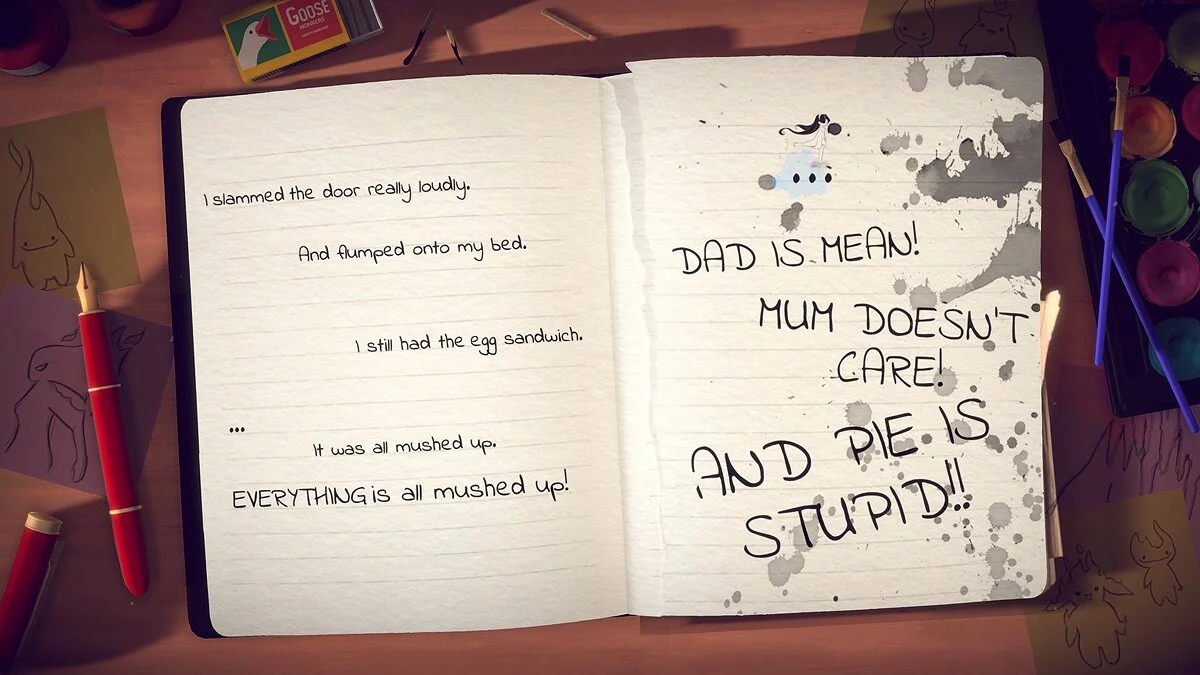 GOOSE
HONKERS
I slammed the door really loudly.
And flumped onto my bed.
I still had the egg sandwich.
...
It was all mushed up.
EVERYTHING is all mushed up!
DAD IS MEAN!
MUM DOESN'T
CARE!
AND PIE IS
STUPID!!